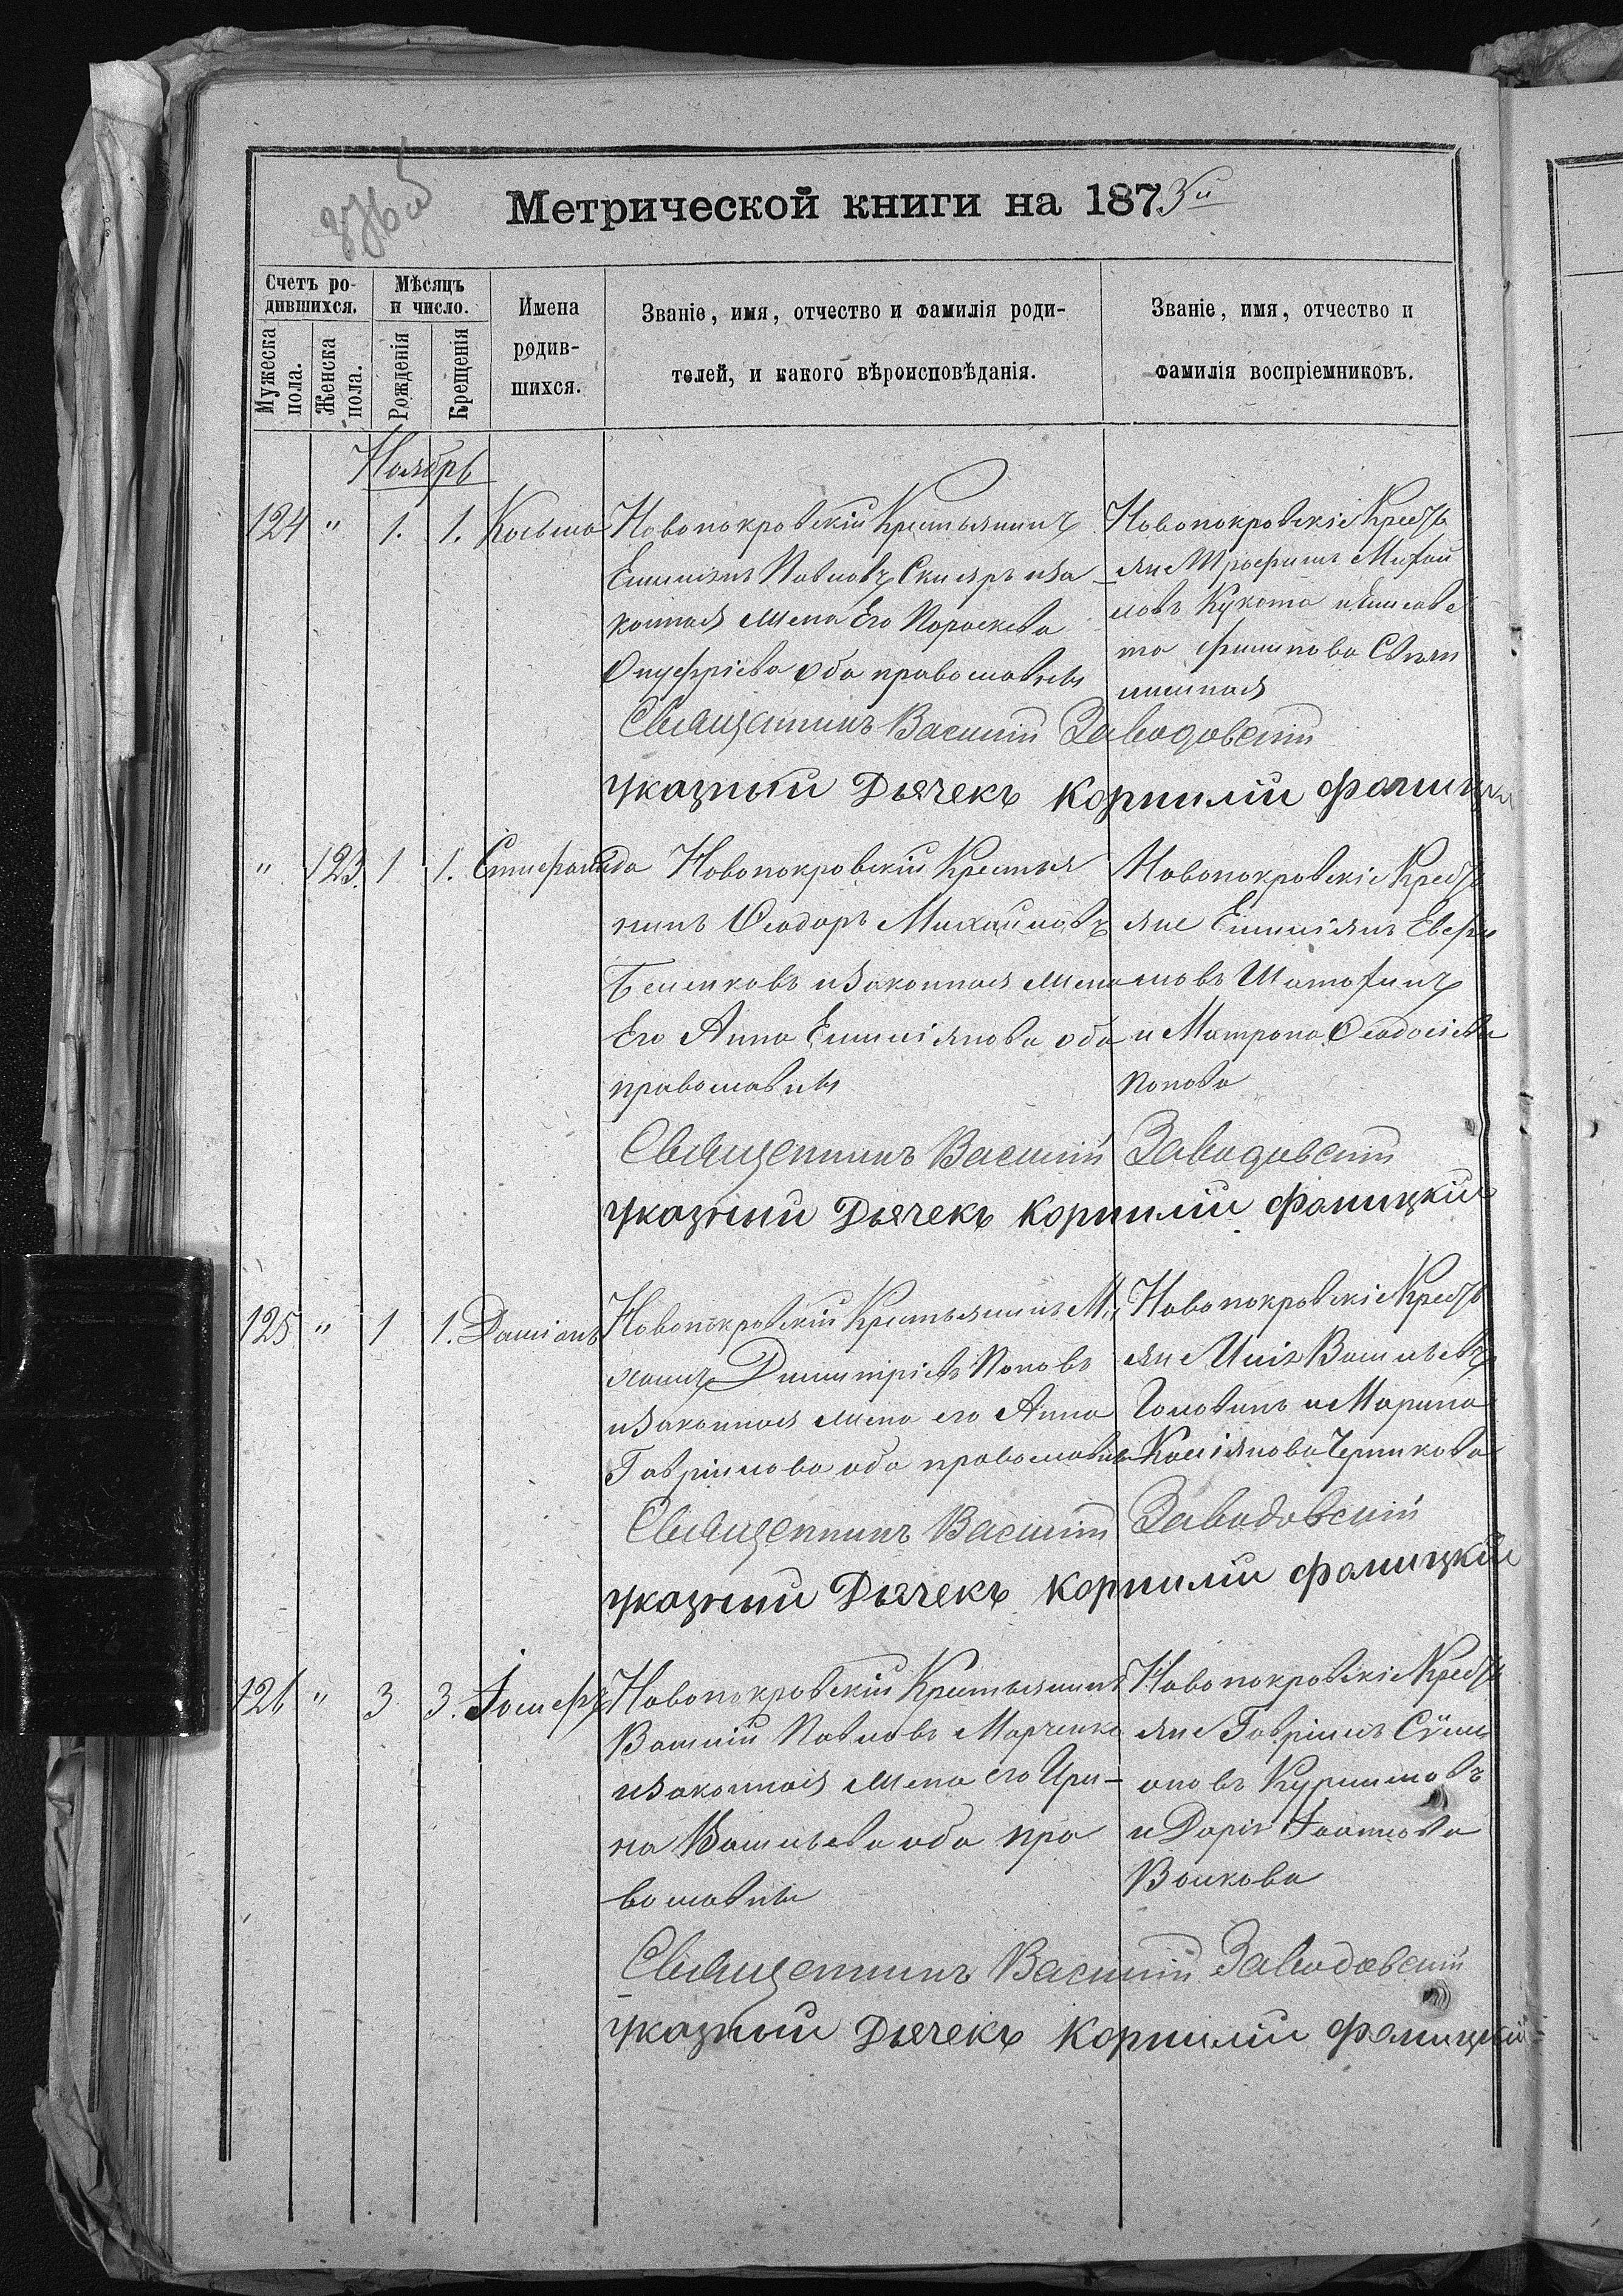 Метрической книги на 1873й
Счетъ ро-
дившихся.
Мѣсяцъ
и число.
Имена
родив-
шихся.
Званіе, имя, отчество и фамилія роди-
телей, и какого вѣроисповѣданія.
Званіе, имя, отчество и
фамилія воспріемниковъ.
Мужеска
пола.
Женска
пола.
Рожденія
Крещенія
Ноябрь
124 " 1. 1. Косьма
Новопокровскій Крестьянинъ
Емиліянъ Павловъ Скляръ и за
конная жена Его Параскева
Онуфріева оба православны
Новопокровскіе Кресть
яне Трофимъ Михай
ловъ Кукота и Елисаве
та Филипова
Священникъ Василій Заводовскій
указный Дьячекъ Корнилій Фаницкій
" 123. 1 1. Стефанида
Новопокровскій Крестья
нинъ Ѳеодоръ Михаиловъ
Беленковъ и законная жена
Его Анна Емиліянова оба
православны
Новопокровскіе Кресть
яне Емиліянъ Евфи
мовъ Шатохинъ
и Матрона Ѳеодосіева
Попова
Священникъ Василій Заводовскій
указный Дьячекъ Корнилій Фаницкій
125 " 1 1. Даміанъ
Новопокровскій Крестьянинъ Ми
хаилъ Димитріевъ Поповъ
и законная жена его Анна
Гавріилова оба православны
Новопокровскіе Кресть
яне Илія Васильевъ
Головинъ и Марина
Касіянова Черникова
Священникъ Василій Заводовскій
указный Дьячекъ Корнилій Фаницкій
126 " 3 3. Іосифъ
Новопокровскій Крестьянинъ
Василій Павловъ Марченко
и законная жена его Ири-
на Васильева оба пра
вославны
Новопокровскіе Кресть
яне Гавріилъ Сүме
оновъ Куриловъ
и Дарія Іоаннова
Волкова
Священникъ Василій Заводовскій
указный Дьячекъ Корнилій Фаницкій